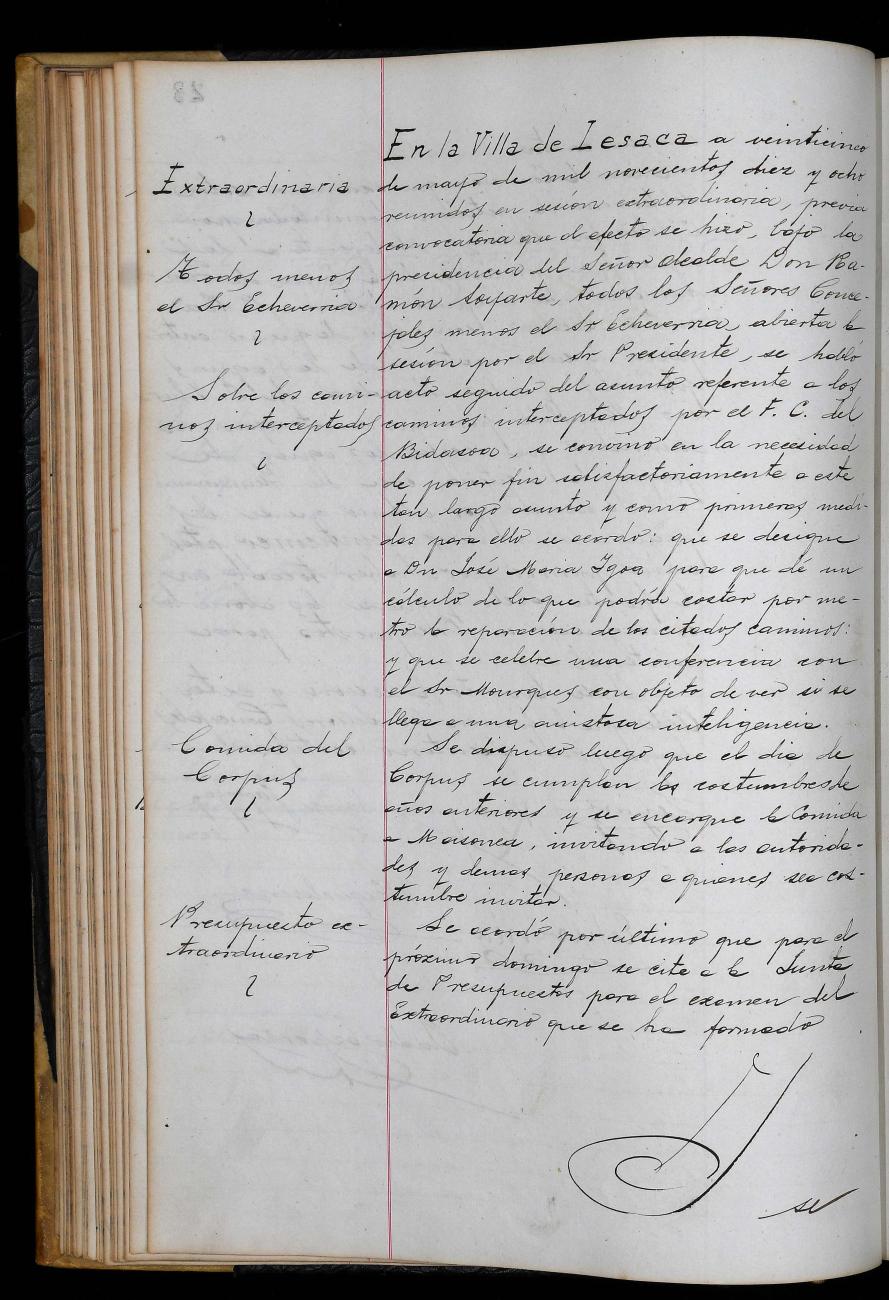 Extraordinaria
Todos menos
el Sr Echeverria
Sobre los cami-
nos interceptados
Comida del
Corpus
Presupuesto ex-
traordinario
En la Villa de Lesaca a veinticinco
de mayo de mil novecientos diez y ocho
reunidos en sesión extraordinaria, previa
convocatoria que al efecto se hizo, bajo la
presidencia del Señor Alcalde Don Ra-
món Loyarte, todos los Señores Conce-
jales menos el Sr Echeverria, abierta la
sesión por el Sr Presidente, se habló
acto seguido del asunto referente a los
caminos interceptados por el F. C. del
Bidasoa, se convino en la necesidad
de poner fin satisfactoriamente a este
tan largo asunto y como primeras medi-
das para ello se acordo: que se designe
a Dn José Maria Igoa para que dé un
cálculo de lo que podría costar por me-
tro la reparación de los citados caminos:
y que se celebre una conferencia con
el Sr Mourgues con objeto de ver si se
llega a una amistosa inteligencia.
Se dispuso luego que el dia de
Corpus se cumplan las costumbres de
años anteriores y se encargue la Comida
a Maisonea, invitando a las autorida-
des y demas personas a quienes sea cos-
tumbre invitar.
Se acordó por último que para el
próximo domingo se cite a la Junta
de Presupuestos para el examen del
Extraordinario que se ha formado
se